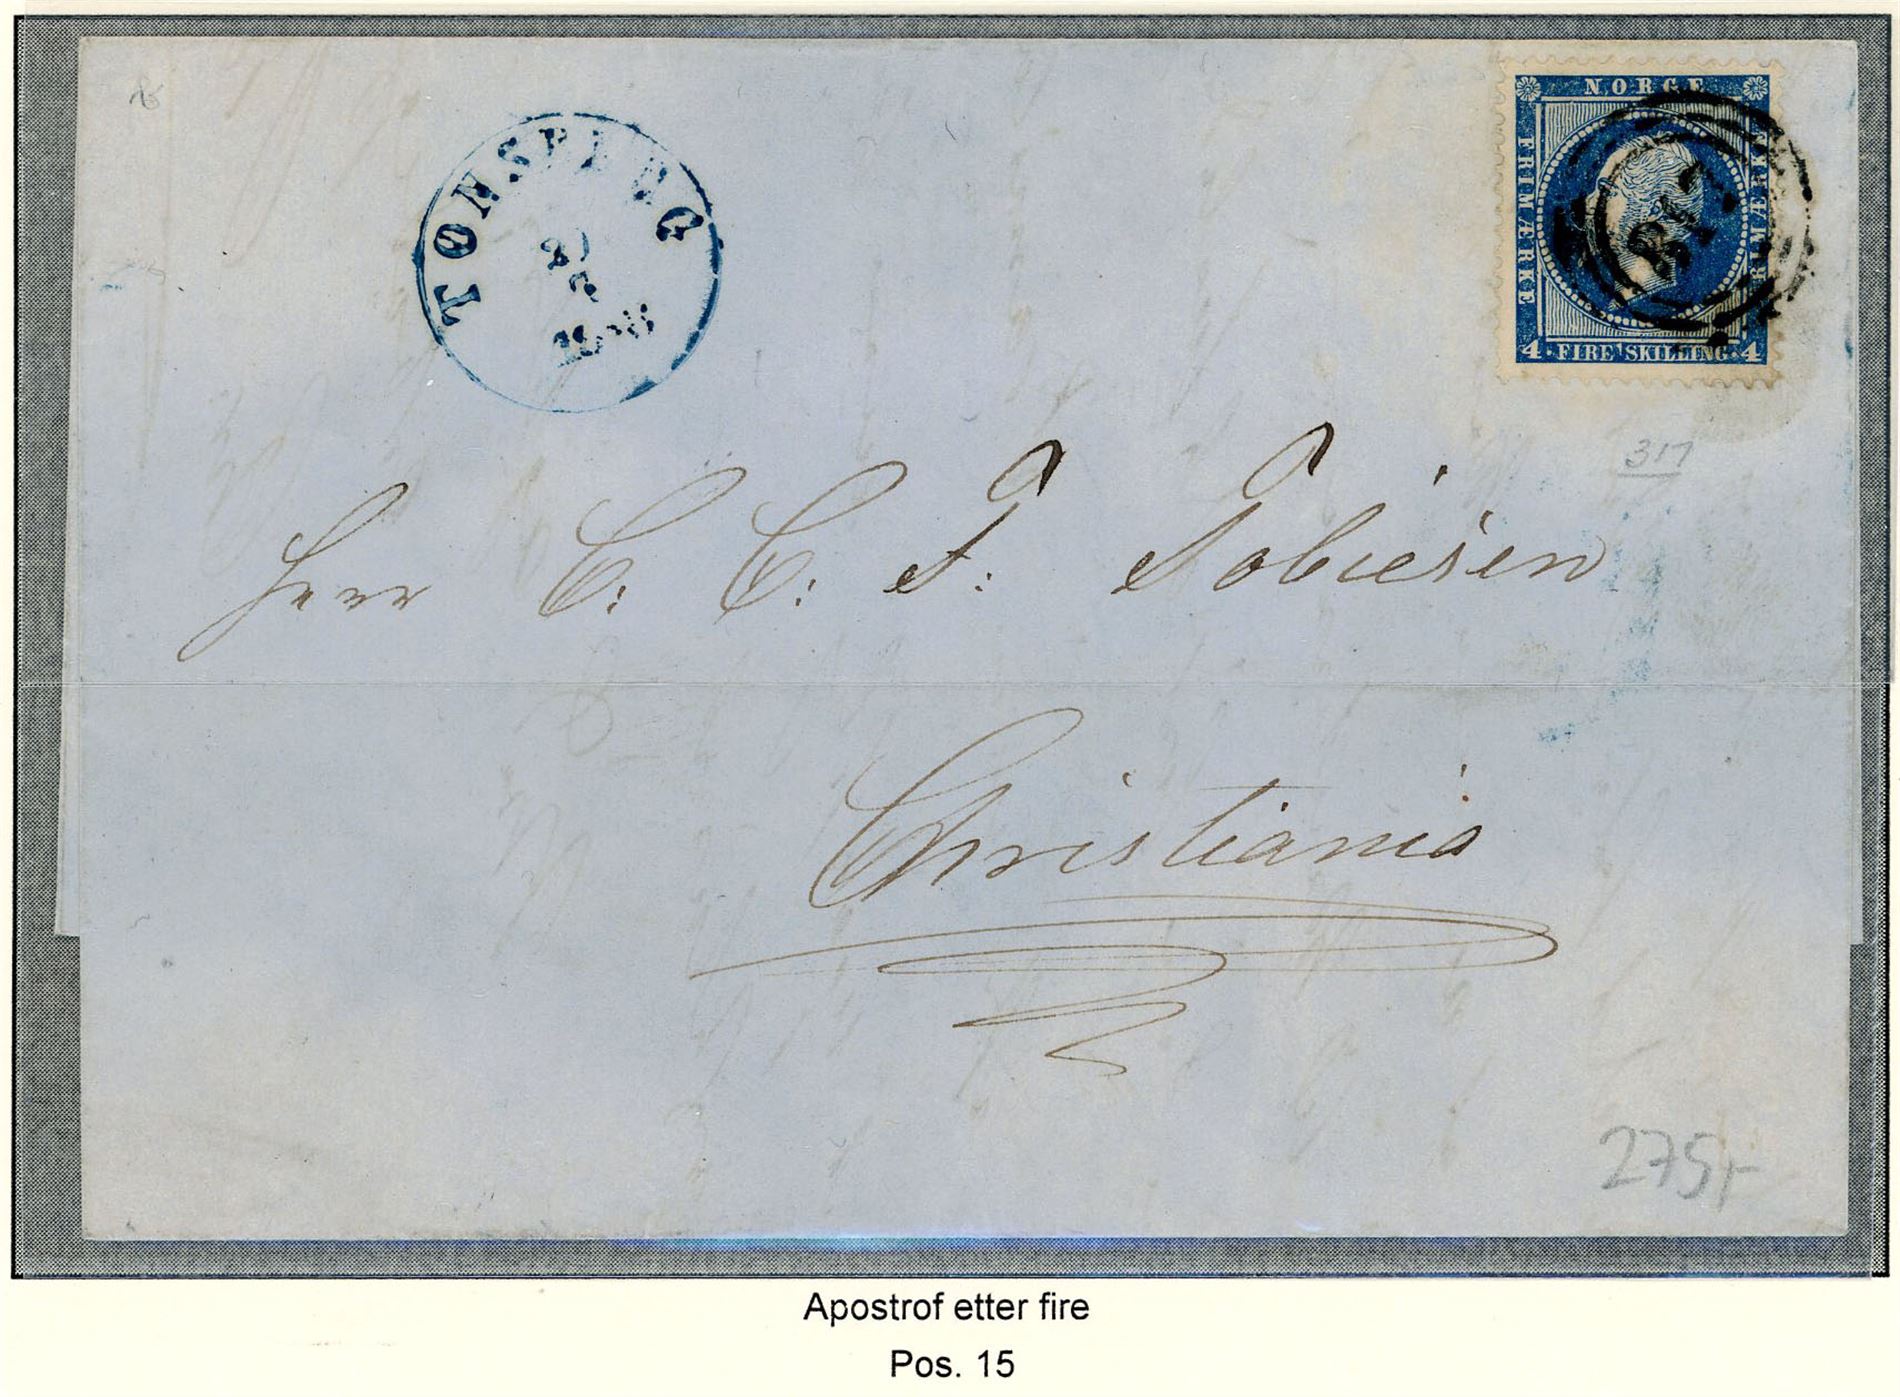 TØNSBERG
NORGE
FRIMÆRKE
FRIMÆRKE
4 · FIRE' SKILLING · 4
317
Herr C: C: T: Tobiesen
Christiania
275,-
Apostrof etter fire
Pos. 15